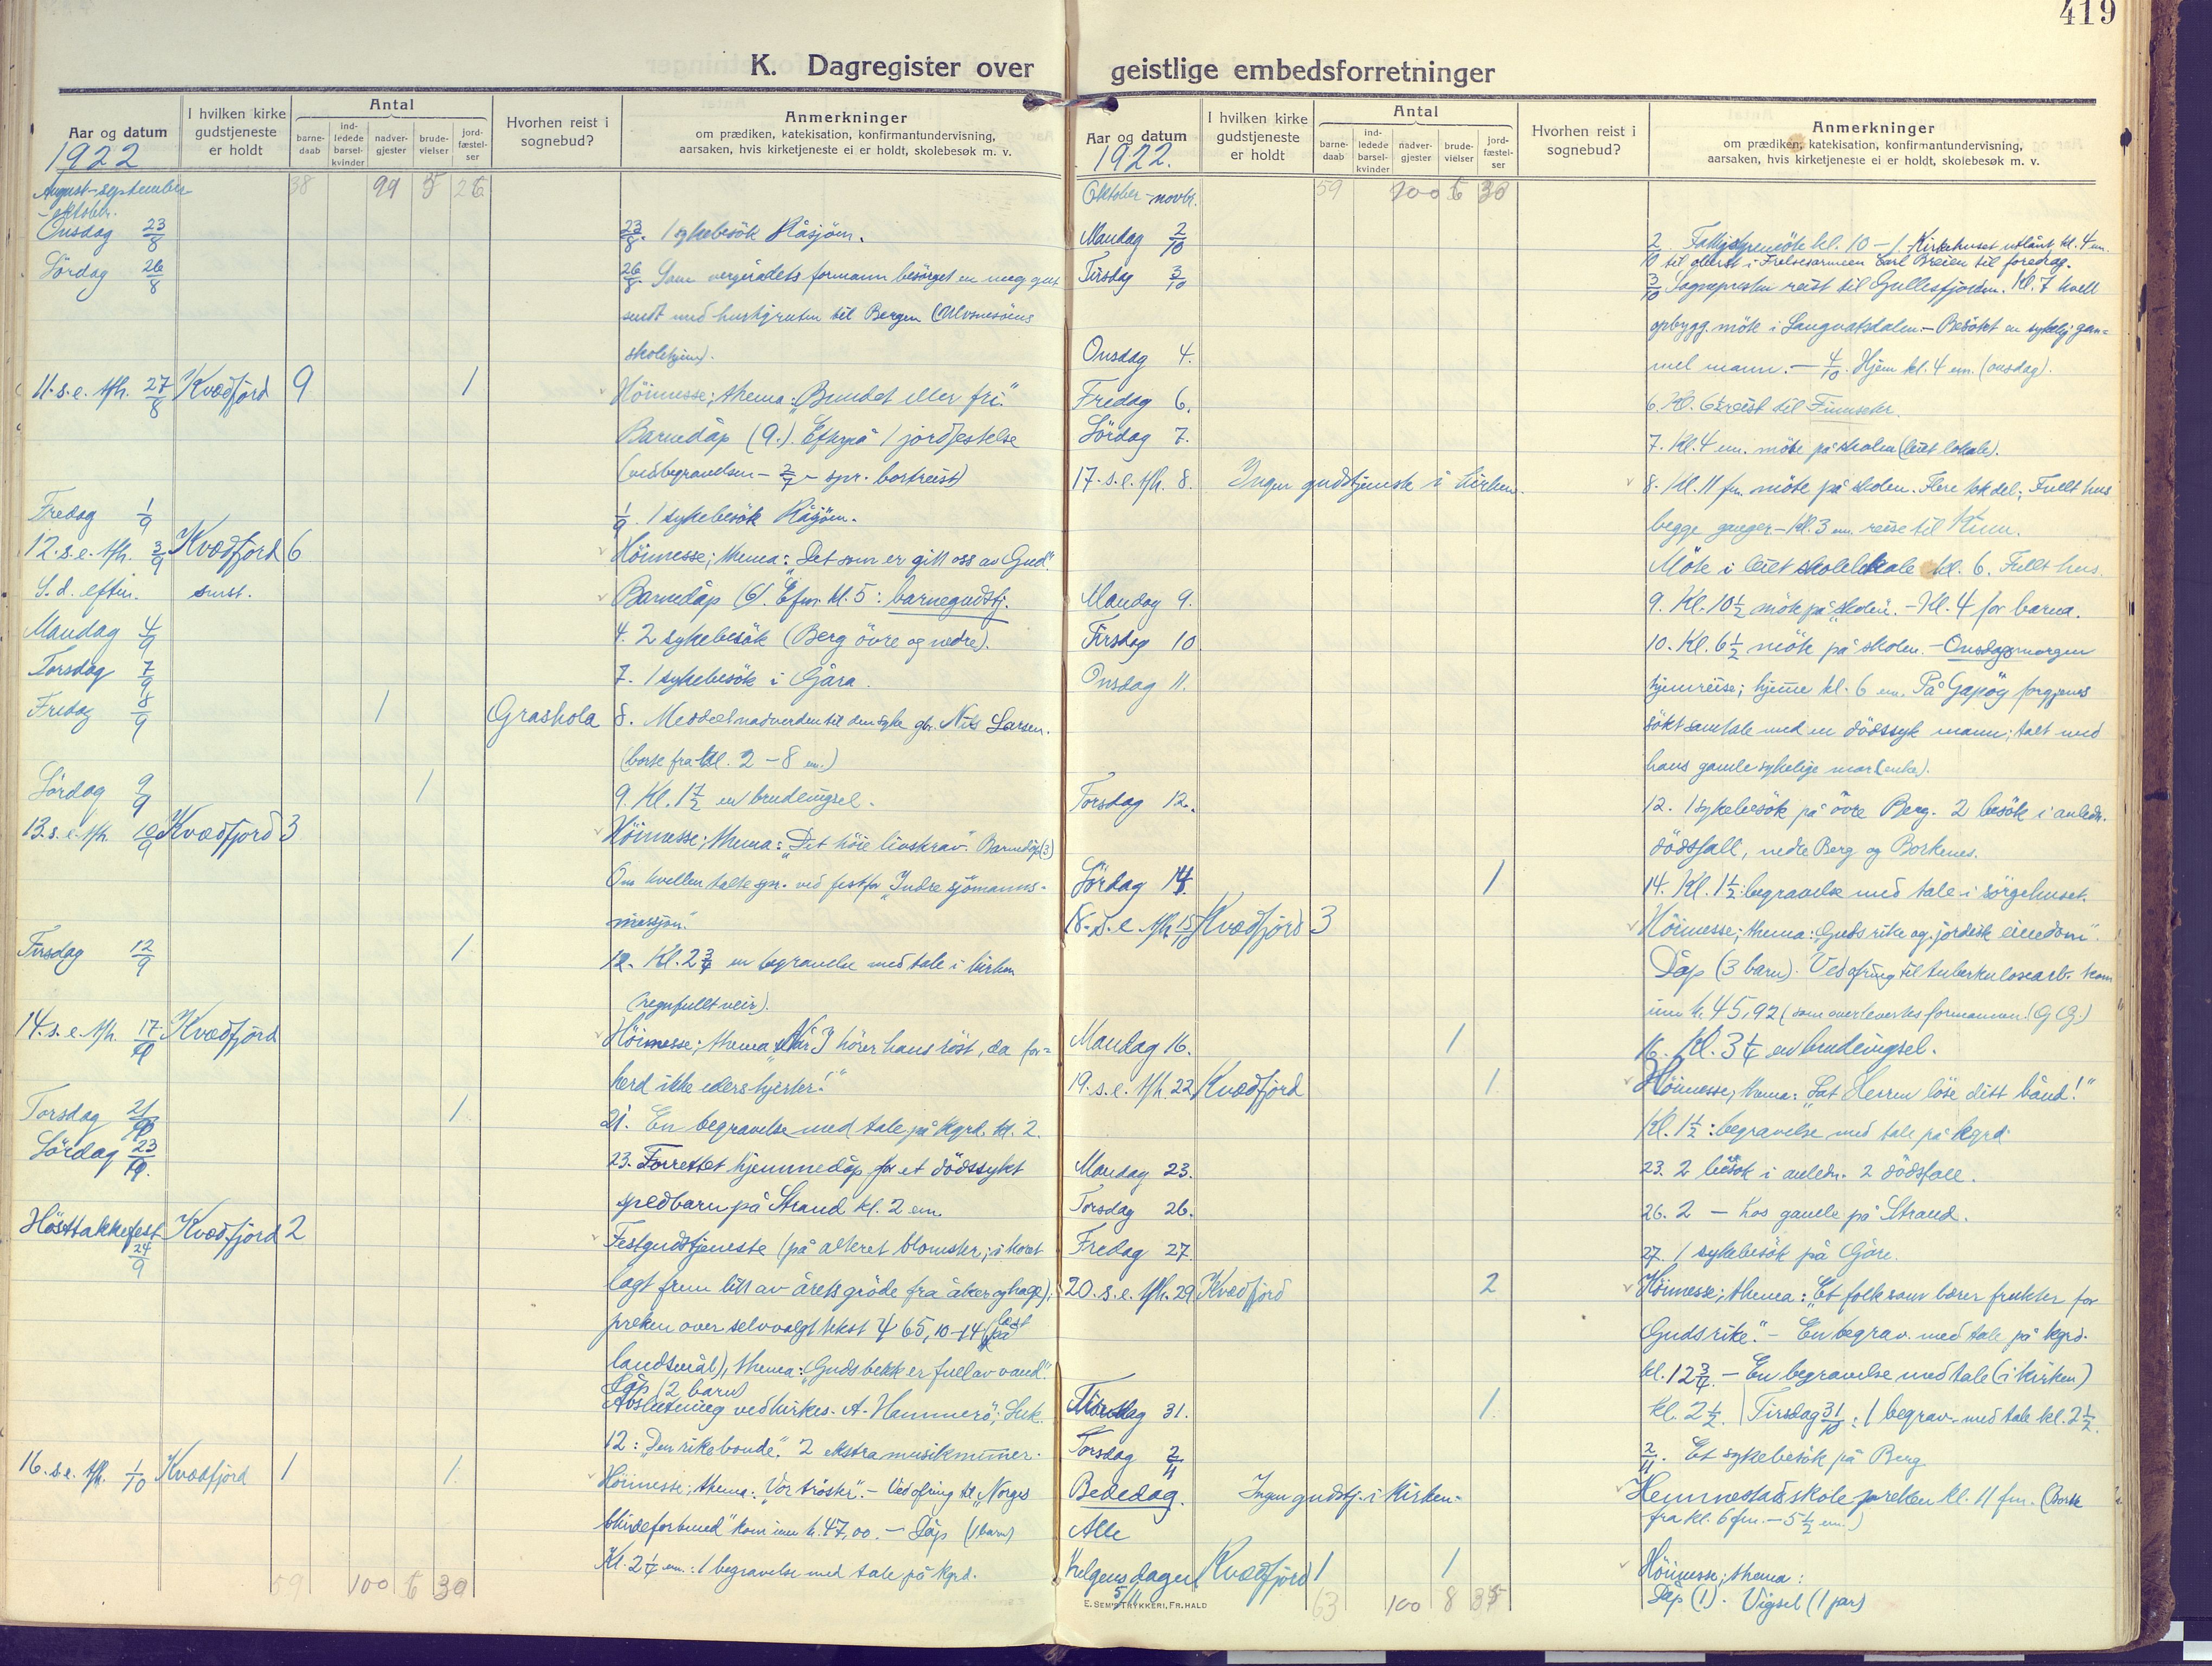 419
K. Dagregister over geistlige embedsforretninger
Aar og datum
1922
I hvilken kirke gudstjeneste er holdt
Antal
barne-daab
ind-ledede barsel-kvinder
nadver-gjester
brude-vielser
jord-fæstel-ser
Hvorhen reist i sognebud?
Anmerkninger
om prædiken, katekisation, konfirmantundervisning,
aarsaken, hvis kirketjeneste ei er holdt, skolebesøk m. v.
August-september 38 99 5 26
-oktobr.
Onsdag 23/8 23/8. 1 sykebesök Råsjöen.
Lördag 26/8 26/8. Som vergerådets formann besörget en ung gut
sendt med hurtigruten til Bergen (Ulvsnesöens
skolehjem).
11. s. e. tfh. 27/8 Kvædfjord 9 1 Höimesse; thema: "Bundet eller fri."
Barnedåp (9). Efterpå 1 jordfestelse
(ved begravelsen - spr. bortreist)
Fredag 1/9 1/9. 1 sykebesök Råsjöen.
12. s. e. tfh. 3/9 Kvædfjord 6 Höimesse; thema: "Det som er gitt oss av Gud".
S. d. eftm. smst. Barnedåp (6). Efm. kl. 5: barnegudstj.
Mandag 4/9 4. 2 sykebesök (Berg övre og nedre).
Torsdag 7/9 7. 1 sykebesök i Gåra.
Fredag 8/9 1 Grashola 8. Meddelt nadverden til den syke gbr. Nils Larsen.
(borte fra kl. 2 - 8 em.)
Lördag 9/9 1 9. Kl. 1 1/2 en brudevigsel.
13. s. e. tfh. 10/9 Kvædfjord 3 Höimesse; thema: "Det höie livskrav". Barnedåp (3)
Om kvellen talte spr. ved fest for "Indre sjömanns-
misjon".
Tirsdag 12/9 1 12. Kl. 2 3/4 en begravelse med tale i kirken
(regnfullt veir).
14. s. e. tfh. 17/9 Kvædfjord Höimesse; thema: "Når I hører hans röst, da for-
herd ikke eders hjerter!"
Torsdag 21/9 1 21. En begravelse med tale på kgrd. kl. 2.
Lördag 23/9. 23. Forrettet hjemmedåp for et dödssykt
spedbarn på Strand kl. 2 em.
Hösttakkefest 24/9 Kvædfjord 2 Festgudstjeneste (på alteret blomster; i koret
lagt frem litt av årets gröde fra åker og hage);
preken over selvvalgt tekst ψ 65, 10-14 (læst på
landsmål), thema: "Guds bekk er full av vand".
Dåp (2 barn)
Avslutning ved kirkes. A. Hammerö; Luk.
12: "Den rike bonde". 2 ekstra musiknumer.
16. s. e. tfh. 1/10 Kvædfjord 1 1 Höimesse; thema: "Vor tröster". - Ved ofring til "Norges
blindeforbund" kom inn kr. 47,00. - Dåp (1 barn)
Kl. 2 1/4 em.: 1 begravelse med tale på kgrd.
59 100 6 30
Aar og datum
1922.
I hvilken kirke gudstjeneste er holdt
Antal
barne-daab
ind-ledede barsel-kvinder
nadver-gjester
brude-vielser
jord-fæstel-ser
Hvorhen reist i sognebud?
Anmerkninger
om prædiken, katekisation, konfirmantundervisning,
aarsaken, hvis kirketjeneste ei er holdt, skolebesøk m. v.
Oktober - novbr. 59 100 6 30
Mandag 2/10 2/10 Fattigstyremöte kl. 10 - 1. Kirkehuset utlånt kl. 4 em.
til oberst i Frelsesarmeen Carl Breien til foredrag.
Tirsdag 3/10 3/10 Sognepresten reist til Gullesfjorden. Kl. 7 kvell
opbygg. möte i Langvatsdalen. - Besökt en sykelig gam-
Onsdag 4. mel mann. - 4/10. Hjem kl. 4 em. (onsdag).
Fredag 6. 6. Kl. 6 1/2 reist til Finnseter.
Lördag 7. 7. Kl. 4 em. möte på skolen (leiet lokale).
17. s. e. tfh. 8. Ingen gudstjeneste i kirken. 8. Kl. 11 fm. möte på skolen. Flere tok del; Fullt hus
begge ganger - Kl. 3 em. reise til Kinn.
Möte i leiet skolelokale kl. 6. Fullt hus.
Mandag 9. 9. Kl. 10 1/2 möte på skolen. - Kl. 4 for barna.
Tirsdag 10 10. Kl. 6 1/2 möte på skolen. - Onsdag morgen
Onsdag 11. hjemreise; hjemme kl. 6 em. På Gapöy forgjeves
sökt samtale med en dödssyk mann; talt med
hans gamle sykelige mor (enke).
Torsdag 12. 12. 1 sykebesök på övre Berg. 2 besök i anledn.
dödsfall, nedre Berg og Borkenes.
Lördag 14. 1 14. Kl. 1 1/2: begravelse med tale i sörgehuset.
18. s. e. tfh. 15/10 Kvædfjord 3 Höimesse; thema: "Guds rike og jordisk eiendom".
Dåp (3 barn). Ved ofring til tuberkulosearb. kom
inn kr. 45,92 (som overlevertes formannen)
Mandag 16. 1 16. Kl. 3 1/4 en brudevigsel.
19. s. e. tfh. 22. Kvædfjord 1 Höimesse; thema: "Lat Herren löse ditt bånd!"
Kl. 1 1/2: begravelse med tale på kgrd.
Mandag 23. 23. 2 besök i anledn. 2 dödsfall.
Torsdag 26. 26. 2 - hos gamle på Strand.
Fredag 27. 27. 1 sykebesök på Gåre.
20. s. e. tfh. 29. Kvædfjord 2 Höimesse; thema: "Et folk som bærer frukter for
Guds rike". - En begrav. med tale på kgrd.
kl. 12 3/4. - En begravelse med tale (i kirken)
Tirsdag 31. 1 kl. 2 1/2. | Tirsdag 31/10: 1 begrav. med tale kl. 2 1/2.
Torsdag 2/11 2/11. Et sykebesök på Berg.
Bededag. Ingen gudstj. i kirken. Hemmestad skole preken kl. 11 fm. (Borte
fra kl. 6 fm. - 5 1/2 em.)
Alle
Helgens dagen 5/11 Kvædfjord 1 1 Höimesse; thema:
Dåp (1). Vigsel (1 par)
63 100 8 35
E. SEM'S TRYKKERI, FR.HALD